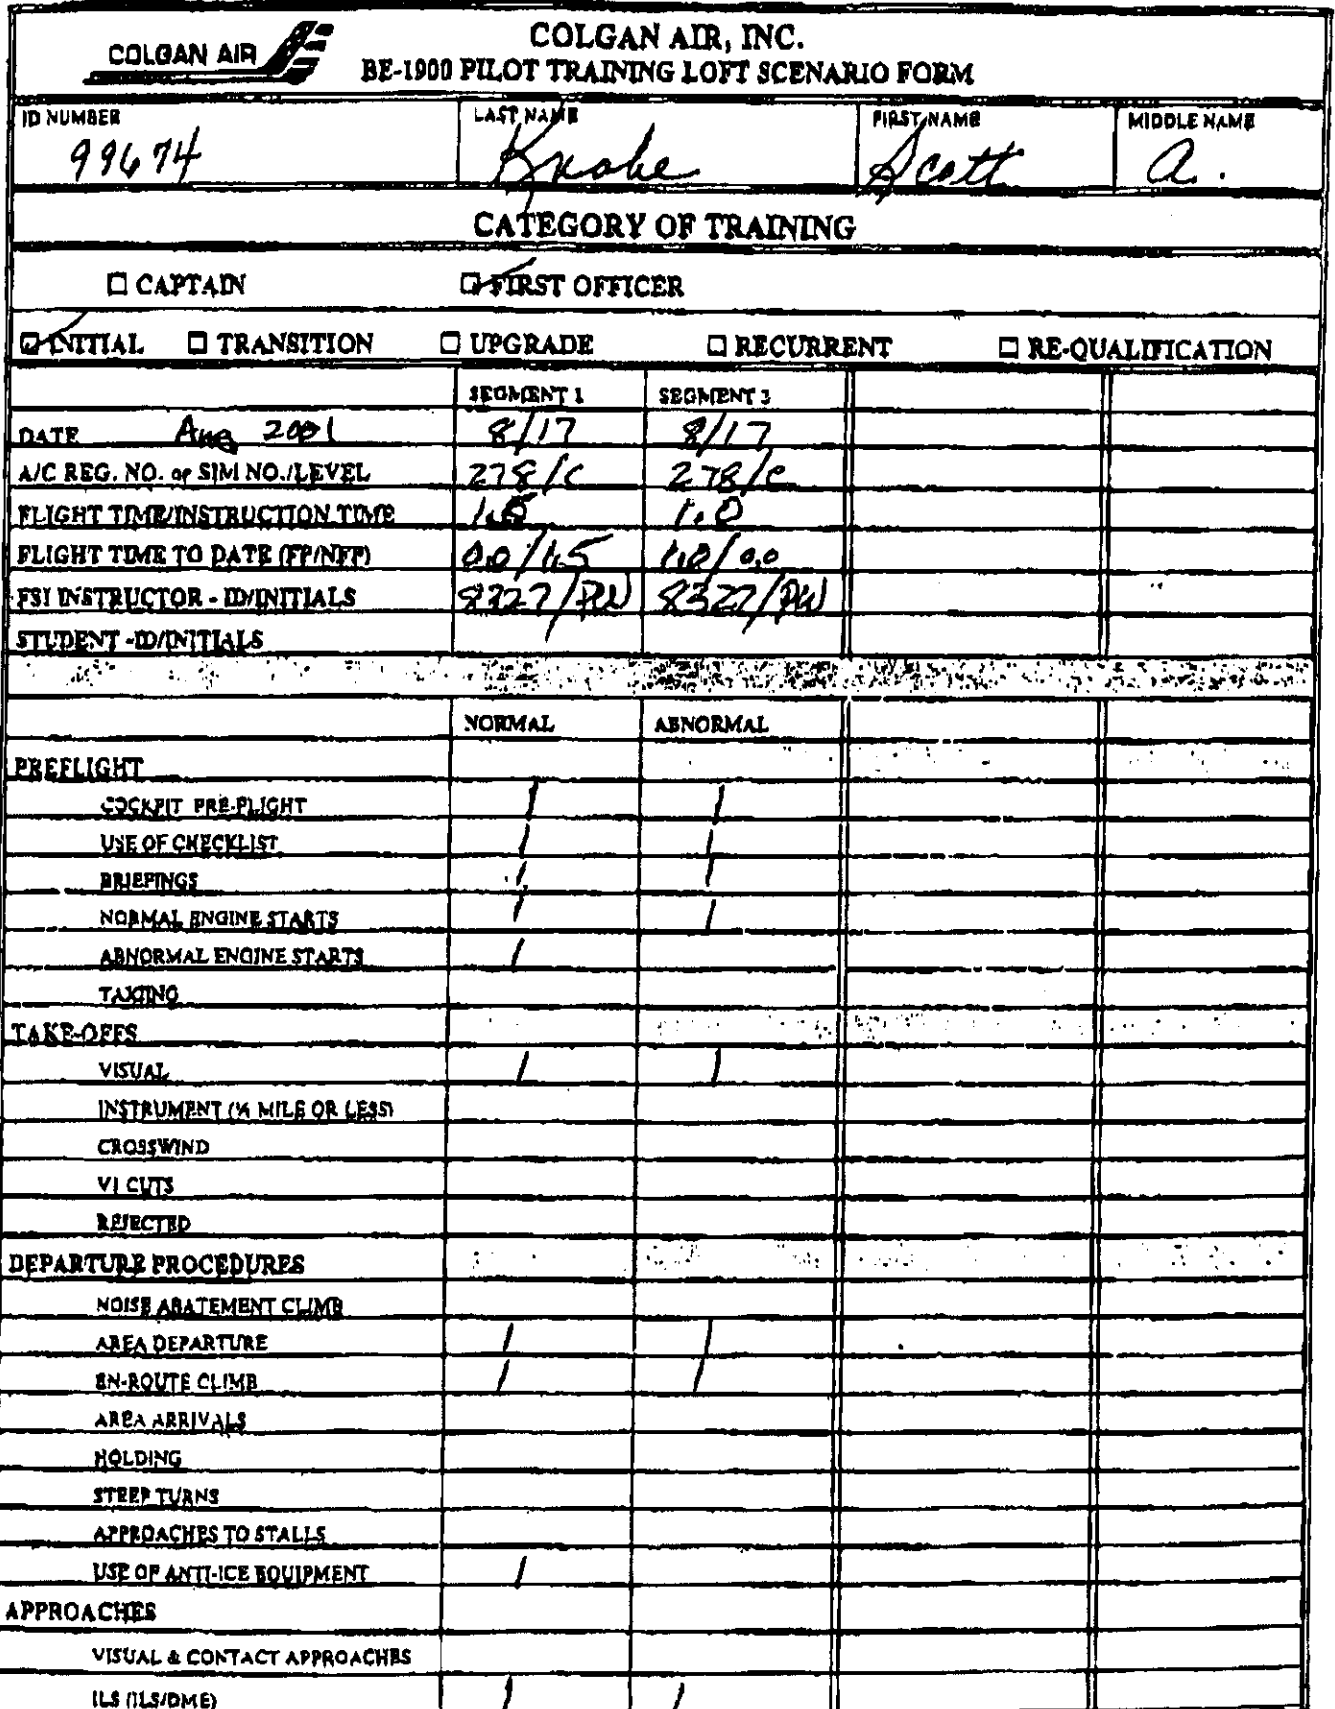 COLGAN AIR
COLGAN AIR, INC.
BE-1900 PILOT TRAINING LOFT SCENARIO FORM
ID NUMBER LAST NAME FIRST NAME MIDDLE NAME
99674 Knabe Scott A.
CATEGORY OF TRAINING
CAPTAIN FIRST OFFICER
INITIAL TRANSITION UPGRADE RECURRENT RE-QUALIFICATION
SEGMENT 1 SEGMENT 3
DATE Aug 2001 8/17 8/17
A/C REG. NO. or SIM NO./LEVEL 278/C 278/C
FLIGHT TIME/INSTRUCTION TIME 1.0
FLIGHT TIME TO DATE (FP/NFP) 0.0/1.5 1.0/0.0
FSI INSTRUCTOR - ID/INITIALS 8327/PW 8327/PW
STUDENT -ID/INITIALS
NORMAL ABNORMAL
PREFLIGHT
COCKPIT PRE-FLIGHT / /
USE OF CHECKLIST / /
BRIEFINGS / /
NORMAL ENGINE STARTS / /
ABNORMAL ENGINE STARTS /
TAXIING
TAKE-OFFS
VISUAL / /
INSTRUMENT (¼ MILE OR LESS)
CROSSWIND
V1 CUTS
REJECTED
DEPARTURE PROCEDURES
NOISE ABATEMENT CLIMB
AREA DEPARTURE / /
EN-ROUTE CLIMB / /
AREA ARRIVALS
HOLDING
STEEP TURNS
APPROACHES TO STALLS
USE OF ANTI-ICE EQUIPMENT /
APPROACHES
VISUAL & CONTACT APPROACHES
ILS (ILS/DME) / /